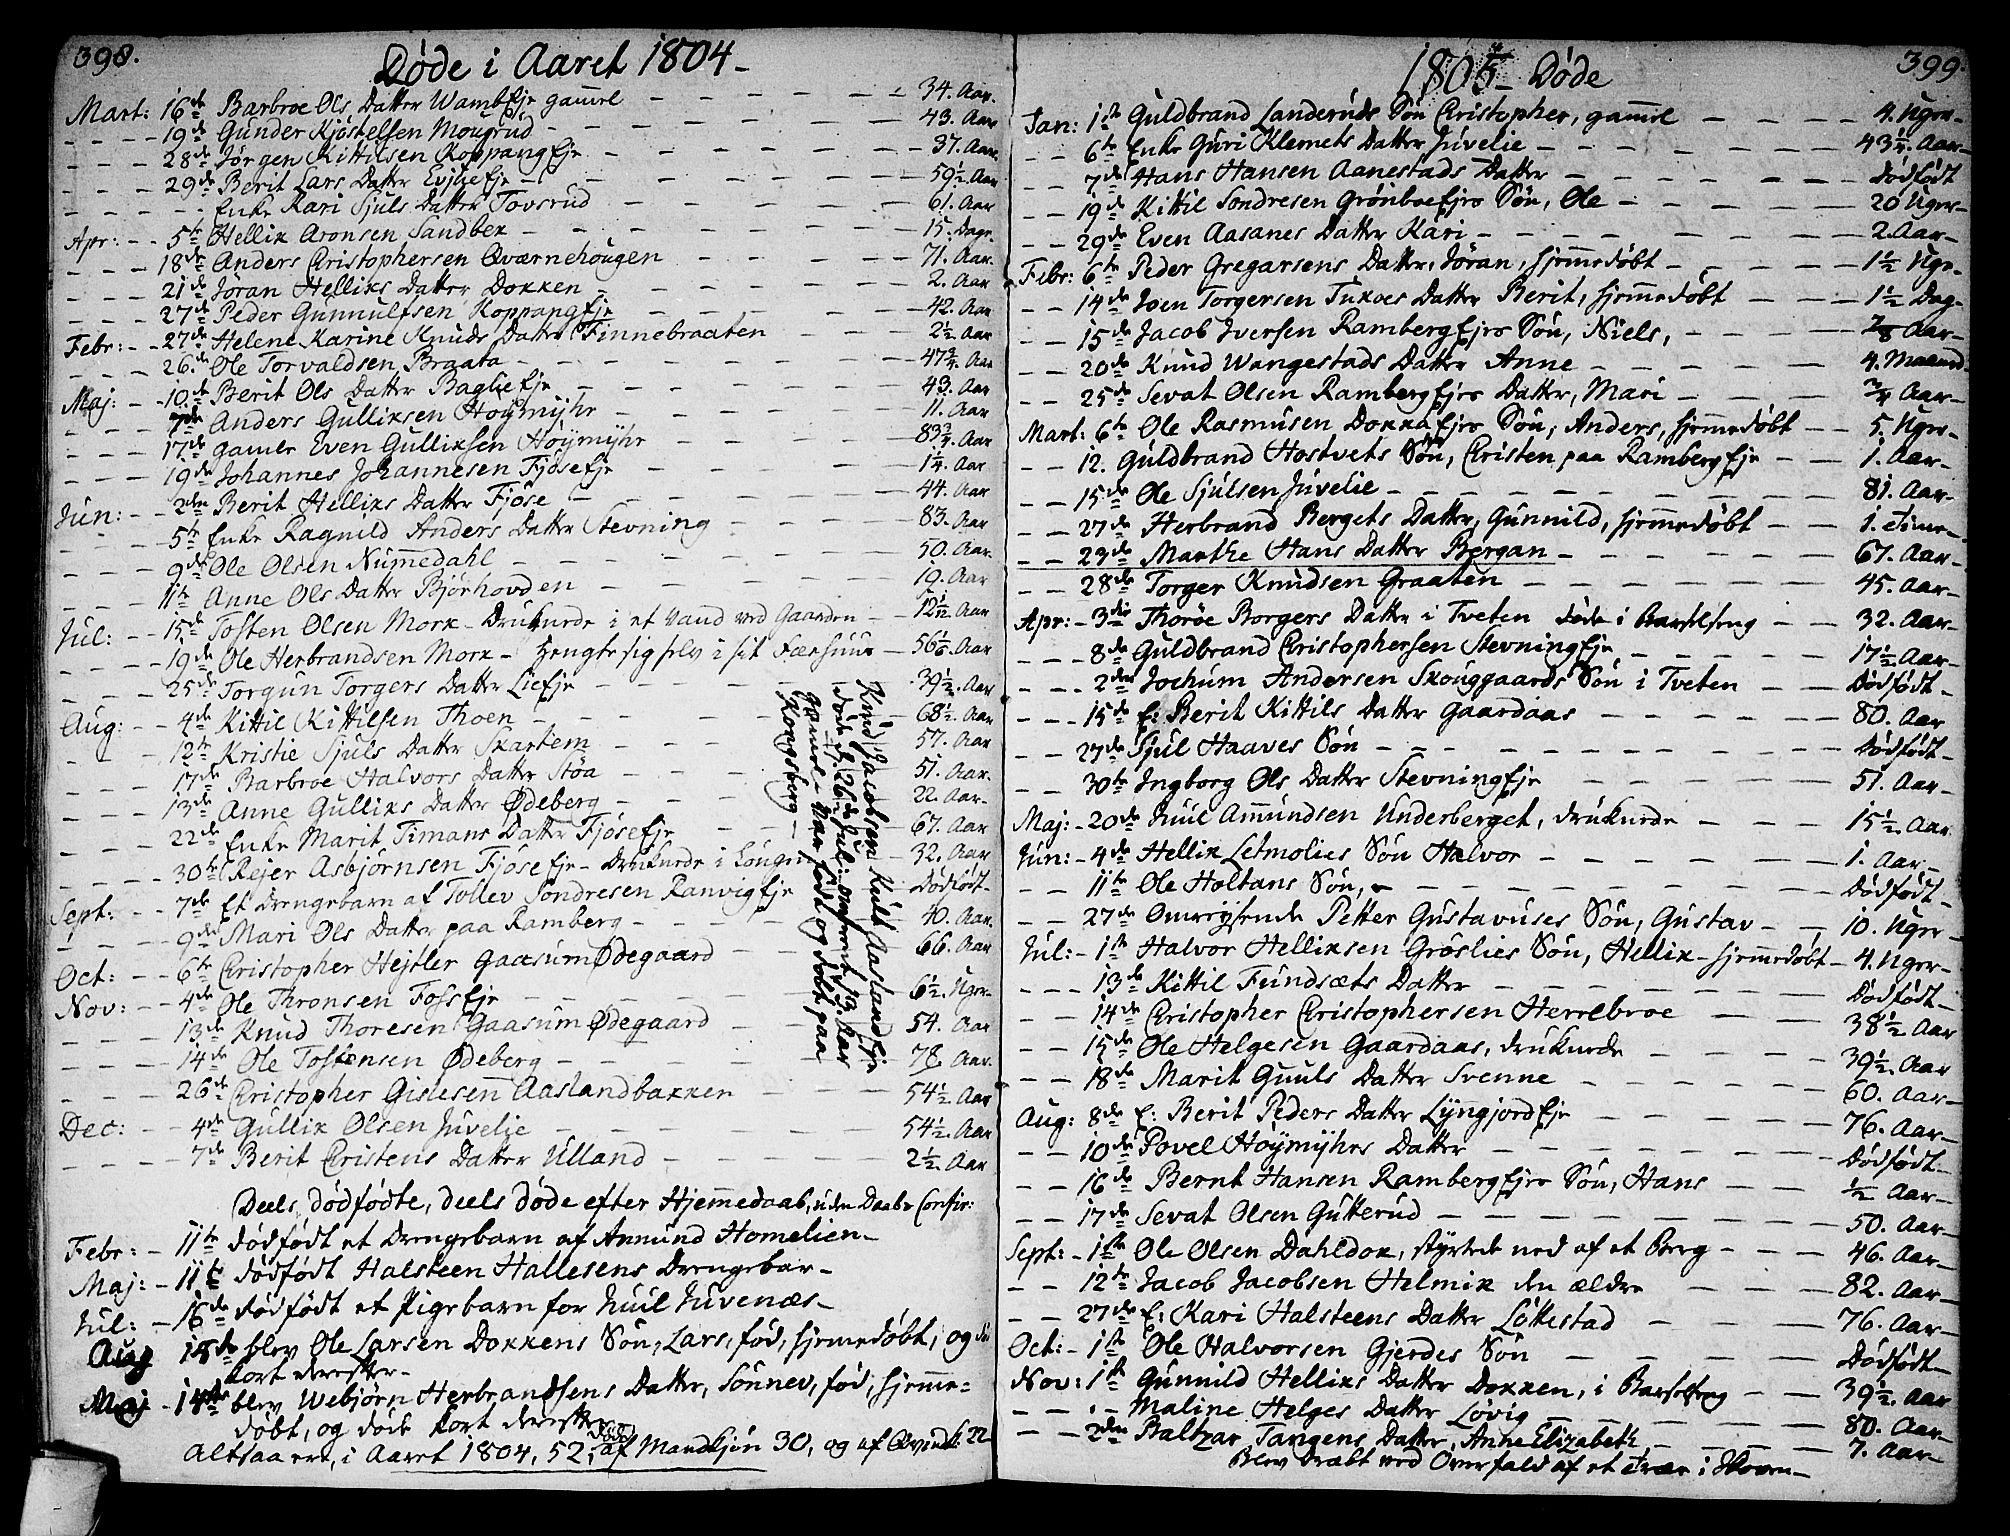 398.
Døde i Aaret 1804
Mart: 16de Barbroe Ols Datter WambEje gam̄el — 34. Aar.
19de Gunder Kjöstelsen Mougrud — 43. Aar
28de Jørgen Kittilsen KoppangEje — 37. Aar.
29de Berit Lars Datter EvjuEje — 59½. Aar
Enke Kari Sjuls Datter Tovsrud — 61. Aar
Apr: 5te Hellik Aronsen Sandbek — 15. Dage.
18de Anders Cristophersen Qværnehougen — 71. Aar.
21de Jøran Helliks Datter Dokken — 2. Aar
27de Peder Gunnulfsen KoppangEje — 42. Aar
Febr: 27de Helene Karine Knuds Datter Finnebraaten — 2½. Aar
26de Ole Torvaldsen Braata — 47¾. Aar
Maj: 10de Berit Ols Datter BaglieEje — 43. Aar
7de Anders Gulliksen Høymyhr — 11. Aar
17de gamle Even Gulliksen Høymyhr — 83¾. Aar
19de Johannes Johannesen FjøseEje — 1¼. Aar
Jun: 2den Berit Helliks Datter Fjøse — 44. Aar
5te Enke Ragnild Anders Datter Stevning — 83. Aar
9de Ole Olsen Num̄edahl — 50. Aar.
11te Anne Ols Datter Bjørhovden — 19. Aar
Jul: 15de Tosten Olsen Mork - Druknede i et Vand ved Gaarden — 12½. Aar
19de Ole Herbrandsen Mork - Hengte sig selv i sit Fæehuus — 56½. Aar
25de Torgun Torgers Datter LieEje — 39½. Aar
Aug: 4de Kittil Kittilsen Thoen — 68½. Aar
12te Kristie Sjuls Datter Skartem — 57. Aar
17de Barbroe Halvors Datter Støa — 51. Aar.
13de Anne Gulliks Datter Ødeberg — 22. Aar.
22de Enke Marit Timans Datter FjøseEje — 67. Aar
30te Rejer Asbjørnsen FjøseEje - Druknede i Lougen — 32. Aar
Sept: 7de Et Drengebarn af Tollev Sondresen RanvigEje — Dødfødt
9de Mari Ols Datter paa Ramberg — 40. Aar.
Oct: 6te Cristopher Hejtler Gaasum Ødegaard — 66. Aar
Nov: 4de Ole Thronsen FossEje — 6½. Uger
13de Knud Thoresen Gaasum Ødegaard — 54. Aar
14de Ole Tostensen Ødeberg — 78. Aar.
26de Cristopher Gislesen Aaslandbakken — 54½. Aar
Dec: 4de Gullik Olsen Juvelie — 54½. Aar
7de Berit Cristens Datter Ulland — 2½. Aar
Knud Jacobsen Kult AaslandEje
døde d. 26de Jul: omtrent 13. Aar
gammel - Var født og døbt paa
Kongsberg -
Deels, dødfødte, deels døde efter Hjem̄edaab, uden Daabs Confir:
Febr: 11te dødfødt et Drengebarn af Amund Homelien
Maj: 11te dødfødt Halsteen Hallesens Drengebar
Jul: 16de dødfødt et Pigebarn for Juul Juvenæs
Aug 15de blev Ole Larsen Dokkens Søn, Lars, fød, hjem̄edøbt, og
kort derefter
Maj 14de blev Webjørn Herbrandsens Datter, Sønnev, fød, hjem̄e=
døbt, og døde kort derefter
Altsaa ere, i Aaret 1804, 52, døde af Mandkjøn 30, og af Qvindk: 22
399.
1805 Døde
Jan: 1ste Guldbrand Landeruds Søn Cristopher, gam̄el — 4. Uger
6te Enke Guri Klemets Datter Juvelie — 43¼. Aar
7de Hans Hansen Aanestads Datter — Dødfødt
19de Kittil Sondresen GrønboeEjes Søn, Ole — 20 Uger
29de Even Aasanes Datter Kari — 2. Aar
Febr: 6te Peder Gregarsens Datter, Jøran, hjem̄edøbt — 1½ Uge
14de Joen Torgersen Tukves Datter Berit, hjem̄edøbt — 1½ Dag
15de Jacob Iversen RambergEjes Søn, Niels, — ⅞ Aar
20de Knud Wangestads Datter Anne — 4. Maaned
25de Sevat Olsen RambergEjes Datter, Mari — ¾ Aar
Mart: 6te Ole Rasmusen DokkaEjes Søn, Anders, hjem̄edøbt — 5. Uger
12. Guldbrand Hostvets Søn, Cristen paa RambergEje — 1. Aar
15de Ole Sjulsen Juvelie — 81. Aar
27de Herbrand Bergets Datter, Gunnild, hjem̄edøbt — 1. Time
29de Marthe Hans Datter Bergan — 67. Aar
28de Torger Knudsen Graaten — 45. Aar
Apr: 3die Thorøe Borgers Datter i Tveten døde i Barselseng — 32. Aar
8de Guldbrand Cristophersen StevningEje — 17½. Aar
2den Jochum Andersen Skouggaards Søn i Tveten — Dødfødt
15de E: Berit Kittils Datter Gaardaas — 80. Aar
27de Sjul Haaves Søn — Dødfødt
30te Ingborg Ols Datter StevningEje — 51. Aar
Maj: 20de Juul Amundsen Underberget, druknede — 15½. Aar
Jun: 4de Hellik Letmolies Søn Halvor — 1. Aar
11te Ole Holtans Søn, — Dødfødt
27de Omrejsende Petter Gustavuses Søn, Gustav — 10. Uger
Jul: 1ste Halvor Helliksen Grøslies Søn, Hellik - hjem̄edøbt — 4. Uger
13de Kittil Fundsæts Datter — Dødfødt
14de Cristopher Cristophersen Herrebroe — 38½. Aar
15de Ole Helgesen Gaardaas, druknede — 39½. Aar
18de Marit Guuls Datter Svenne — 60. Aar
Aug: 8de E: Berit Peders Datter LyngjordEje — 76. Aar
10de Povel Høymyhrs Datter — Dødfødt
16de Bernt Hansen RambergEjes Søn, Hans — ½ Aar
17de Sevat Olsen Gutterud — 50. Aar
Sept: 1ste Ole Olsen Dahldok, styrtede ned af et Berg — 46. Aar
12te Jacob Jacobsen Helmik den ældre — 82. Aar
27de E: Kari Halsteens Datter Løttestad — 76. Aar
Oct: 1ste Ole Halvorsen Gjerdes Søn — Dødfødt
Nov: 1ste Gunnild Helliks Datter Dokken, i Barselseng — 39½. Aar
Maline Helges Datter Løvig — 80. Aar
2den Baltzar Tangens Datter, Anne Elizabeth — 7. Aar
Blev dræbt ved Overfald af et Træe i Skoven